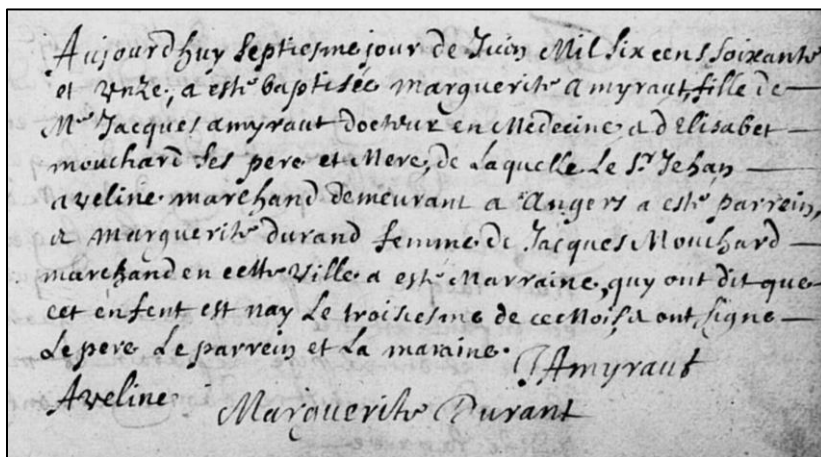 Aujourdhuy septiesme jour de Juin Mil six cens soixante
et unze, a esté baptisée marguerite amyraut, fille de
Me Jacques amyraut docteur en Medecine & d'Elisabet
mouchard ses pere et Mere, de Laquelle Le Sr Jehan
aveline marchand demeurant a Angers a esté parrein,
& marguerite durand femme de Jacques Mouchard
marchand en cette ville a esté Marraine, quy ont dit que
cet enfent est nay Le troisiesme de ce Mois & ont signe
Le pere Le parrein et La maraine.
J Amyraut
Aveline
Marguerite Durant